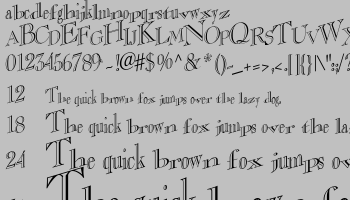 abcdefghijklmnopqrstuvwxyz
ABCDEFGHIJKLMNOPQRSTUVWX
0123456789 .,!@#$%^&*()~_-+=>,<.[]{}|\":;/?
12 The quick brown fox jumps over the lazy dog.
18 The quick brown fox jumps over the la
24 The quick brown fox jumps ov
The quick brown fox